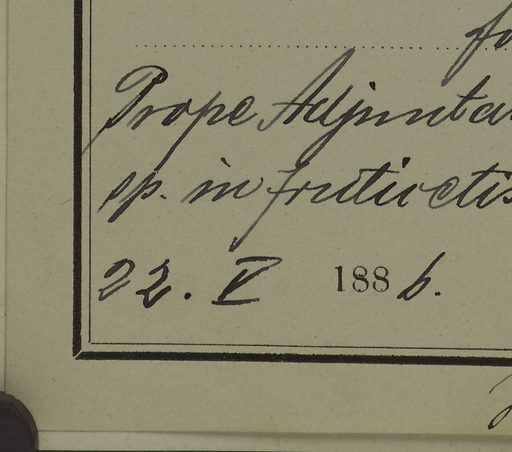 Prope Adjuntas
sp. in fruticetis
22. V 1886.